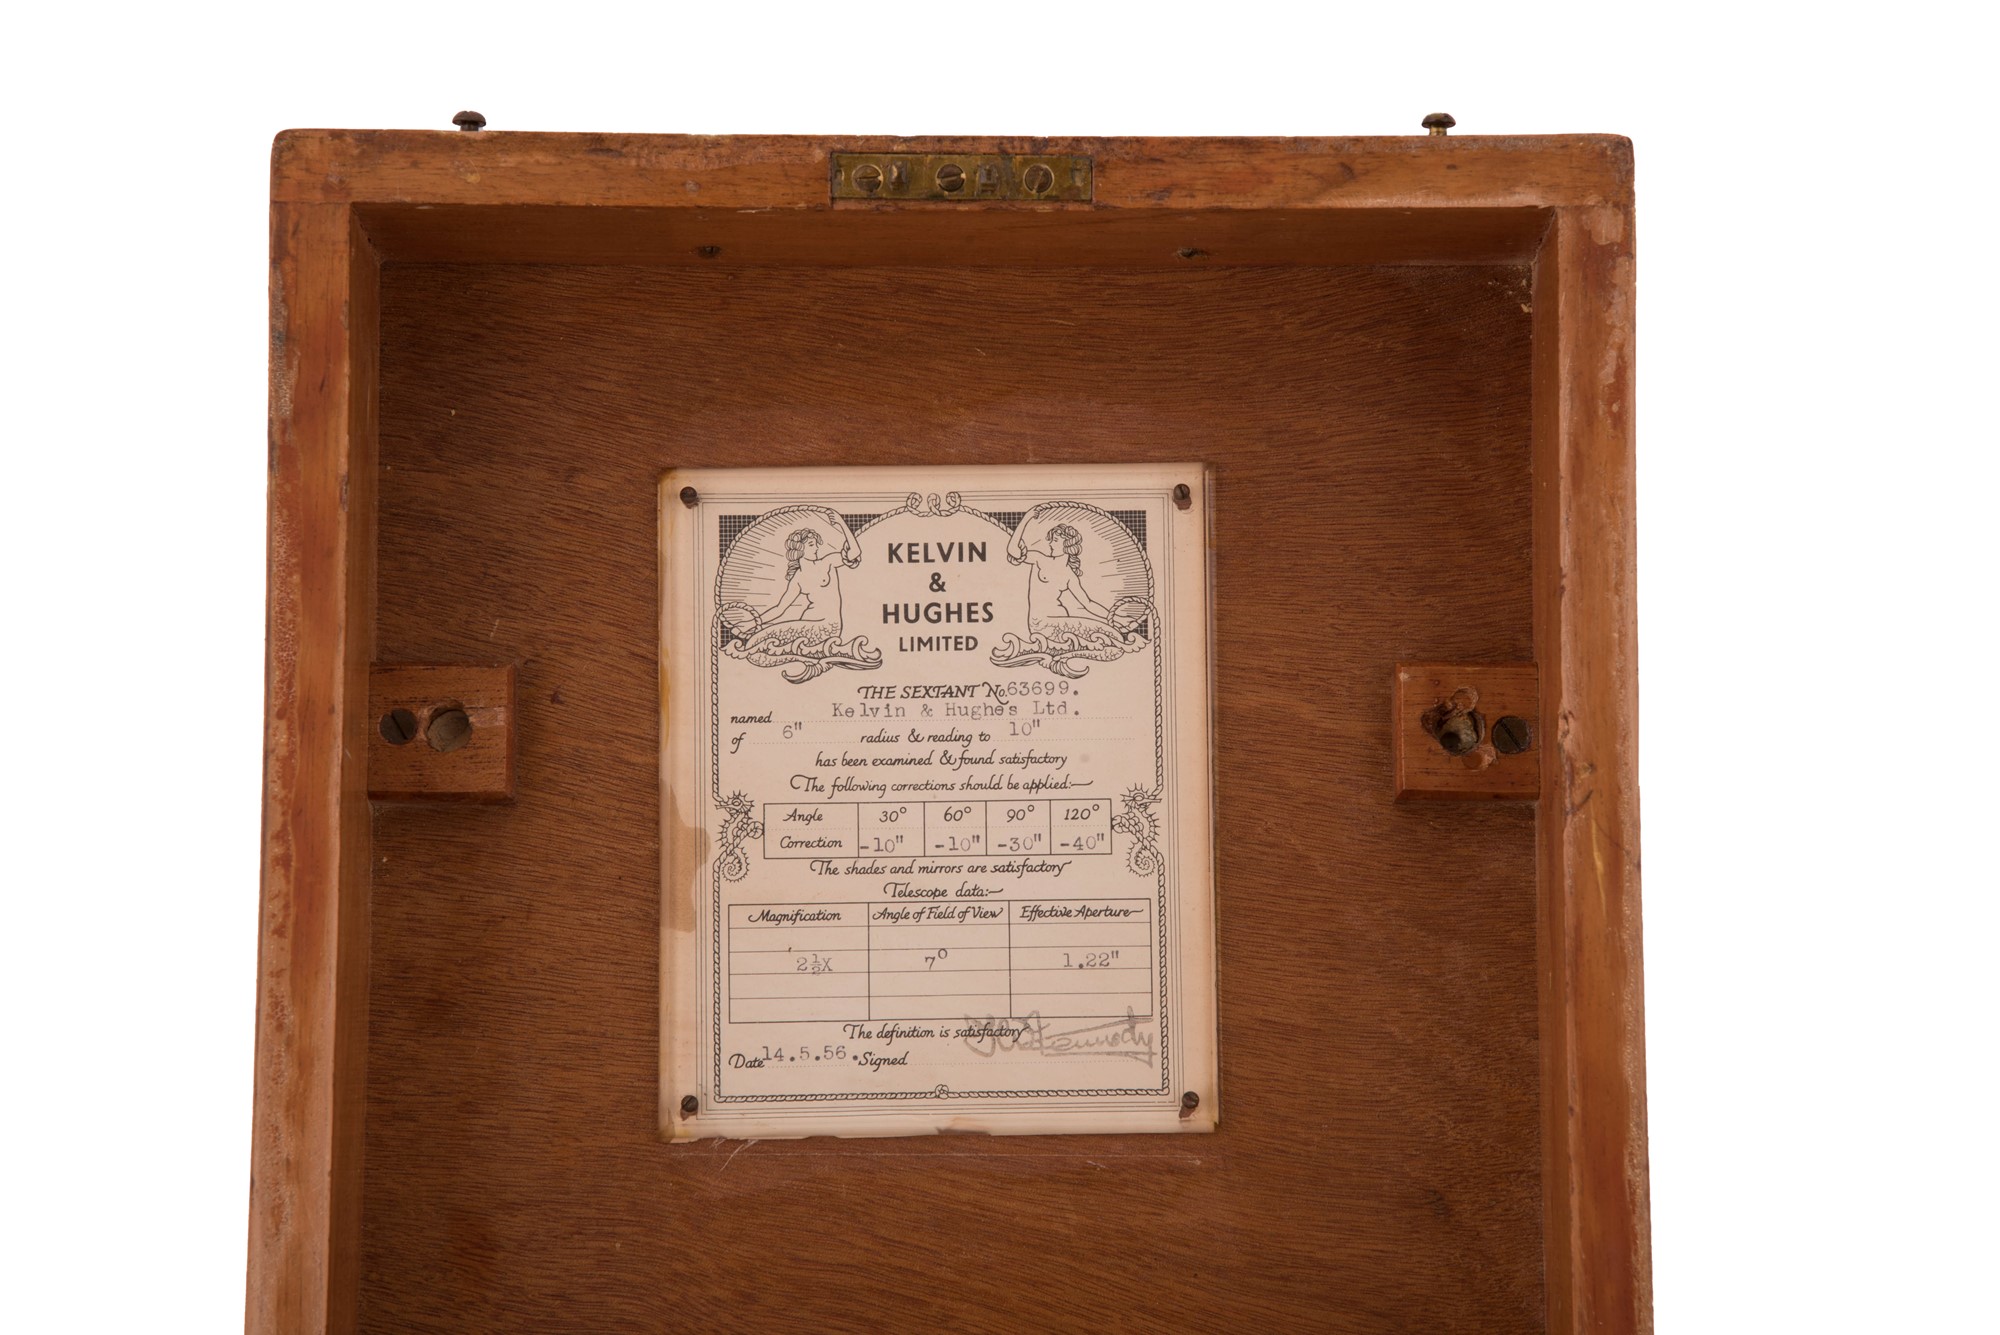 KELVIN
&
HUGHES
LIMITED
THE SEXTANT No. 63699.
named Kelvin & Hughes Ltd.
of 6" radius & reading to 10"
has been examined & found satisfactory
The following corrections should be applied:—
Angle 30° 60° 90° 120°
Correction -10" -10" -30" -40"
The shades and mirrors are satisfactory
Telescope data:—
Magnification Angle of Field of View Effective Aperture
2½X 7° 1.22"
The definition is satisfactory
Date 14.5.56. Signed Kennedy